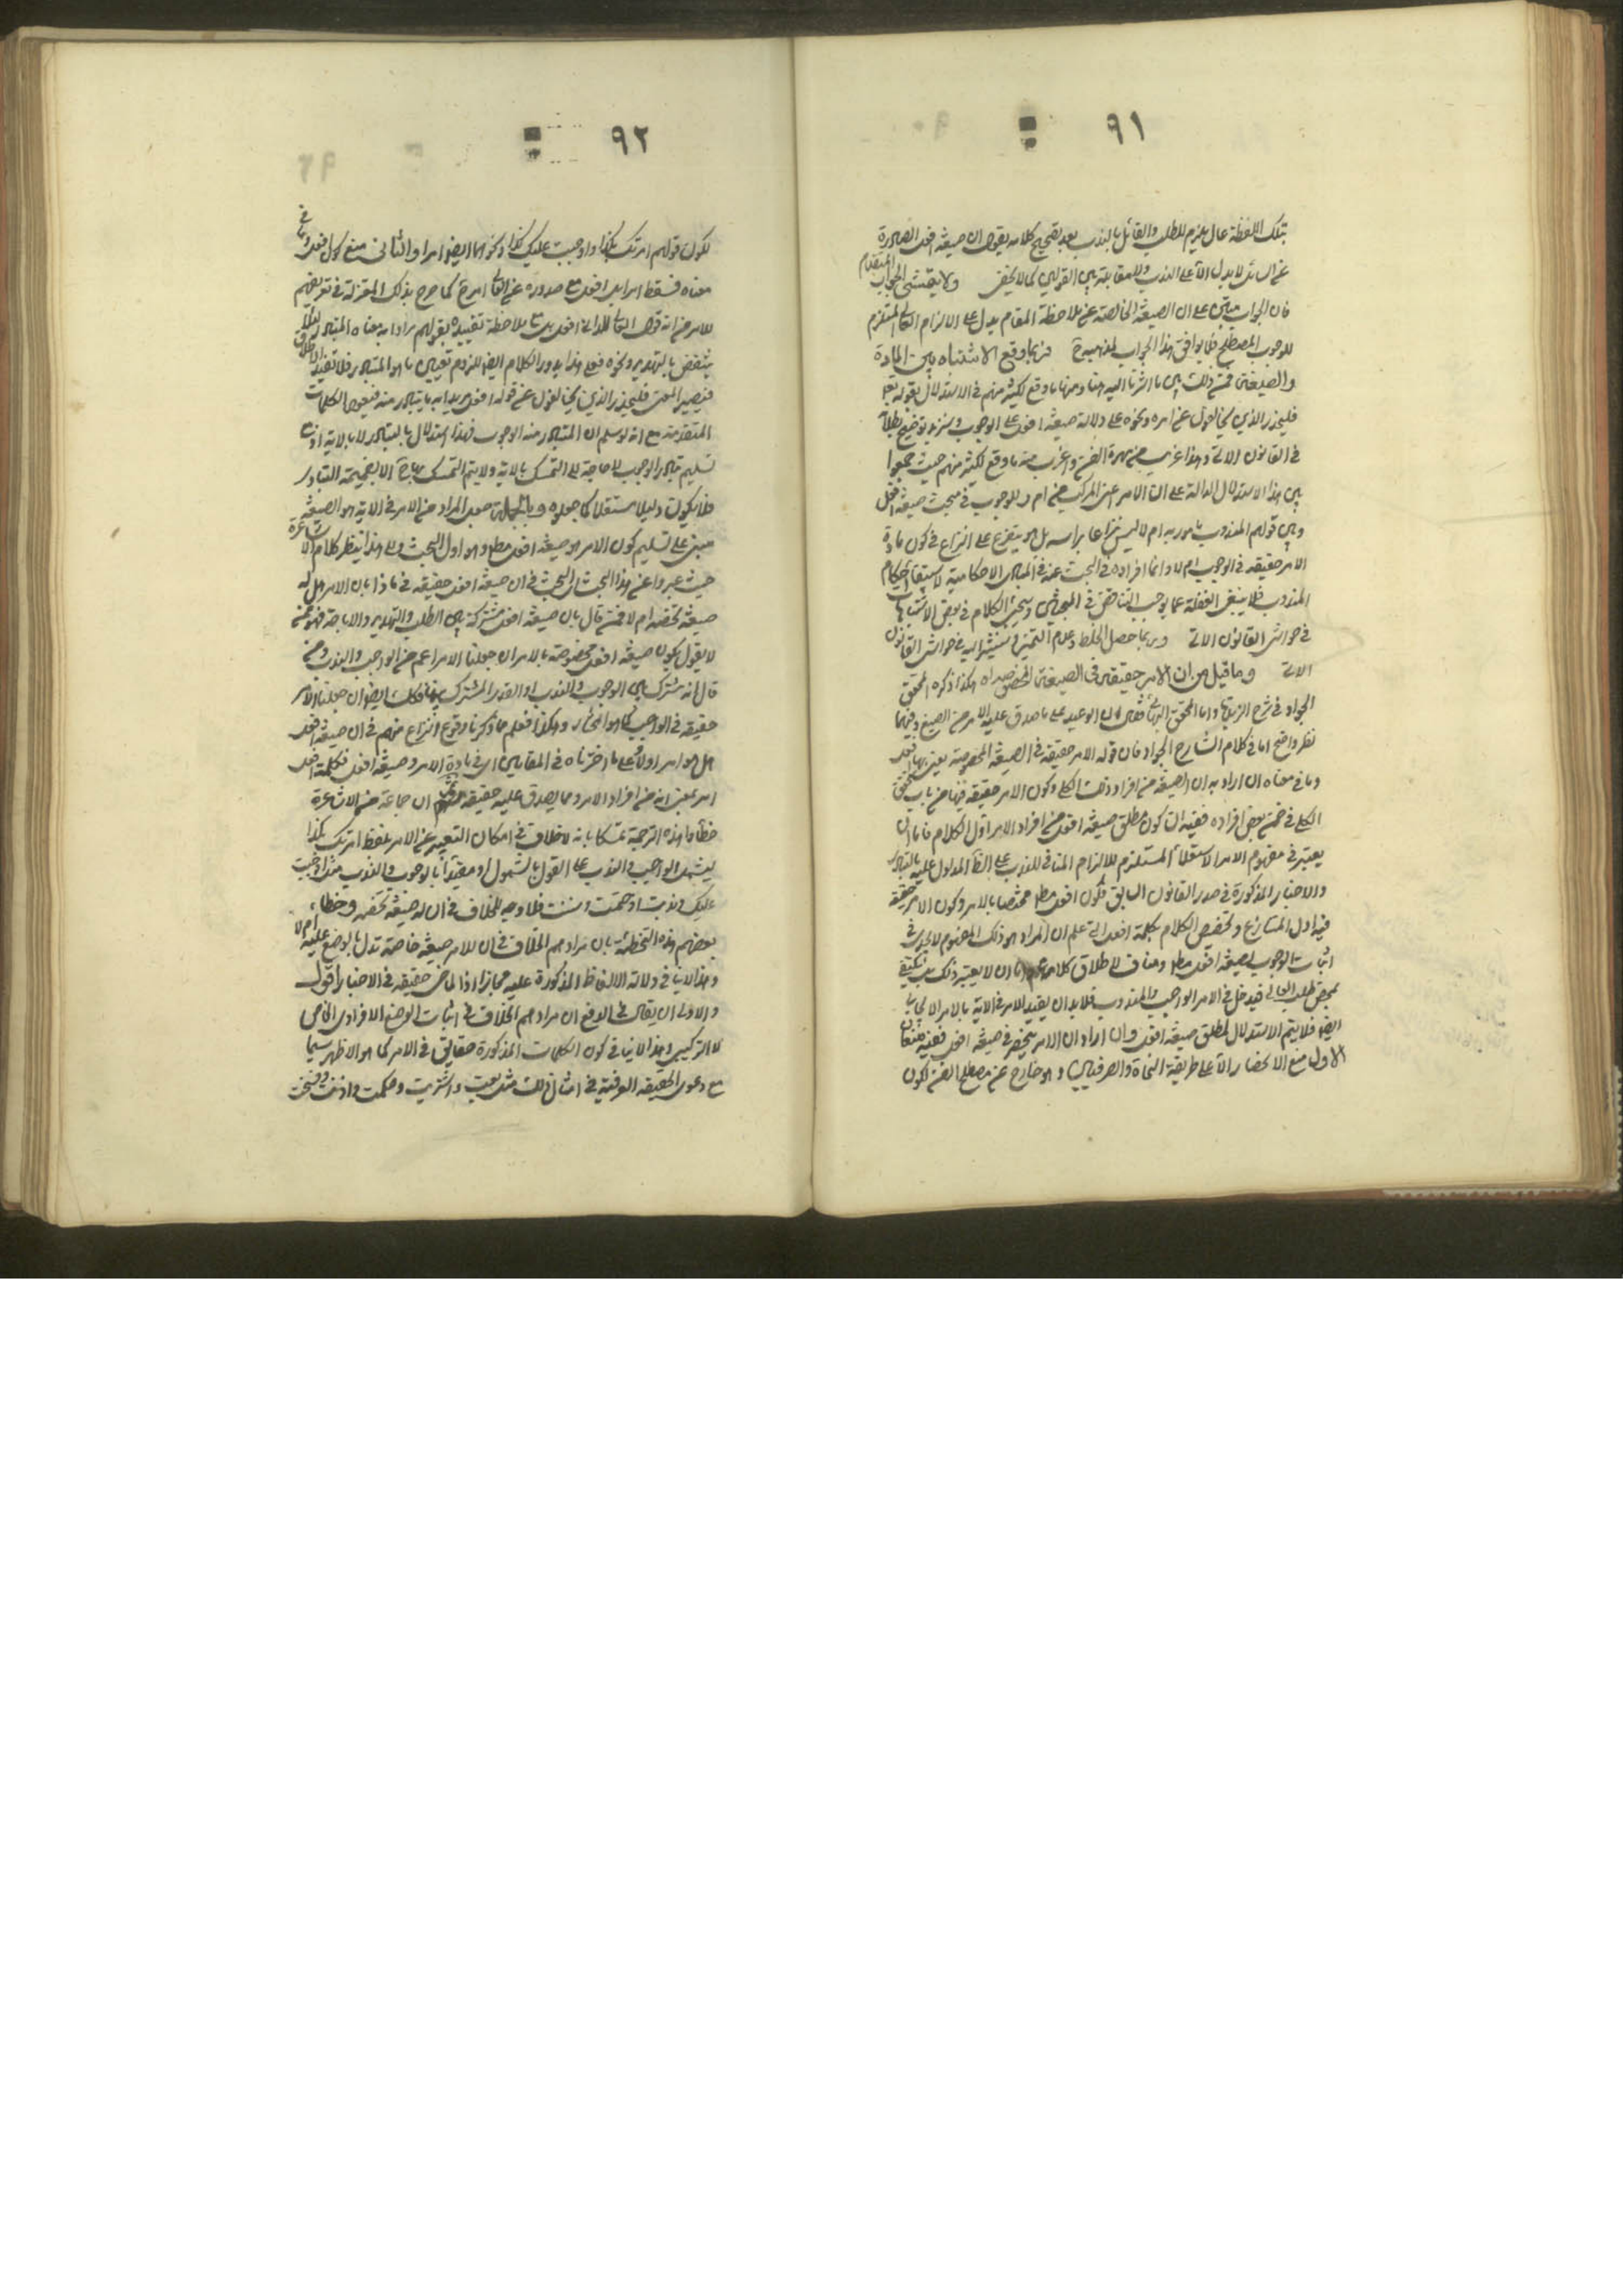 ٩١
بتلك اللفظة عال ملزم للطلب والقائل بالندب بعد تصحيح كلامه يقول ان صيغة افعل الصادرة
عن السائل لا يدل الا على الندب وللمقابلة بين القولين كما لا يخفى ولا يتمشى الجواب المتقدم
فان الجواب مبتن على ان الصيغة الخالصة عن ملاحظة المقام يدل على الالزام المستلزم
للوجوب المصطلح فلا يوافق هذا الجواب لمذهب فربما وقع الاشتباه بين المادة
والصيغة فمن ذلك ما اشرنا اليه هنا ومنها ما وقع لكثير منهم في الاستدلال بقوله تعالى
فليحذر الذين يخالفون عن امره ونحوه على دلالة صيغة افعل على الوجوب وسنزيد توضيح
في القانون الاتي وهذا غريب من مهرة الفن واغرب منه ما وقع لكثير منهم حيث جمعوا
بين هذا الاستدلال الدالة على ان الامر المركب من ام ر للوجوب في مبحث صيغة افعل
وبين قولهم المندوب مامور به ام لا ليس نزاعا براسه بل هو يتفرع على النزاع في كون مادة
الامر حقيقة في الوجوب ام لا وانما افراده في البحث عنه في المبادي الاحكامية لاستيفاء احكام
المندوب فلا ينبغي الغفلة عما يوجب التناقض في المبحثين وسيجيئ الكلام في بعض الاشتباهات
في حواشي القانون الاتي وربما حصل الخلط وعدم التميز وسنشير اليه في حواشي القانون
الاتي وما قيل من ان الامر حقيقة في الصيغة المخصوصة هكذا ذكره المحقق
الجواد في شرح الزبدة واما المحقق البهائي على ما صدق عليه الامر من الصيغ وفيهما
نظر واضح اما في كلام الشارح الجواد فان قوله الامر حقيقة في الصيغة المخصوصة يعني بها افعل
وما في معناه ان اراد به ان الصيغة من افراد ذلك الكلي وكون الامر حقيقة فيها من باب تحقق
الكلي في ضمن بعض افراده ففيه ان كون مطلق صيغة افعل من افراد الامر اول الكلام فاما ان
يعتبر في مفهوم الامر الاستعلاء المستلزم للالزام المنافي للندب على المدلول عليه بالتبادر
والاخبار المذكورة في صدر القانون السابق فكون افعل مط مختصا بالامر وكون الامر حقيقة
فيه اول المتنازع وتخصيص الكلام بكلمة افعل التي علم ان المراد هو ذلك المفهوم لا يجدي في
اثبات الوجوب لصيغة افعل مط ومناف لاطلاق كلامهم واما ان لا يعتبر ذلك بل يكتفي
بمحض طلب العالي فيدخل في الامر الواجب والمندوب فلا بد ان يقيد الامر في الاية بالامر الايجابي
ايضا فلا يتم الاستدلال لمطلق صيغة افعل وان اراد ان الامر منحصر في صيغة افعل ففيه منعان
الاول منع الانحصار الا على طريقة النحاة والصرفيين وهو خارج عن مصطلح الفن لكون
٩٢
لكون قولهم امرتك بكذا واوجبت عليك كذا ونحوهما ايضا امرا والثاني منع كون افعل وما في
معناه فقط امرا بل افعل مع صدوره عن العالي امر كما صرح بذلك المعتزلة في تعريفهم
للامر من انه قول العالي للداني افعل بل مع ملاحظة تقييده بقولهم مرادا به معناه المتبادر لئلا
ينتقض بالتهديد ونحوه فعلى هذا يدور الكلام ايضا للزوم تقييد ما هو المتبادر فلا تفيد الاطلاق
فيصير المعنى فليحذر الذين يخالفون عن قوله افعل مريدا به ما يتبادر منه فيعود الكلمات
المتقدمة مع انه لو سلم ان المتبادر منه الوجوب فهذا استدلال بالتبادر لا بالاية اذ مع
تسليم تبادر الوجوب لا حاجة الى التمسك بالاية ولا يتم التمسك بها الا بضميمة التبادر
فلا يكون دليلا مستقلا كما جعلوه وبالجملة جعل المراد من الامر في الاية هو الصيغة
مبني على تسليم كون الامر هو صيغة افعل مط وهو اول البحث والى هذا ينظر كلام الاشاعرة
حيث عبروا عن هذا البحث اي البحث في ان صيغة افعل حقيقة في ماذا بان الامر هل له
صيغة تخصه ام لا فمن قال بان صيغة افعل مشتركة بين الطلب والتهديد والاباحة فهو ممن
لا يقول بكون صيغة افعل مخصوصة بالامر ان جعلنا الامر اعم من الواجب والندب ومن
قال انه مشترك بين الوجوب والندب او القدر المشترك بينهما فكذلك ايضا ان جعلنا الامر
حقيقة في الواجب كما هو المختار وهكذا فعلم مما ذكرنا وقوع النزاع منهم في ان صيغة افعل
هل هو امر اولا على ما اخترناه في المقامين اي في مادة الامر وصيغة افعل فكلمة افعل
امر بمعنى انه من افراد الامر ومما يصدق عليه حقيقة ان جماعة من الاشاعرة
خطأوا هذه الترجمة تمسكا بانه لا خلاف في امكان التعبير عن الامر بلفظ امرتك بكذا
يشمل الواجب والندب على القول بالشمول او مقيدا بالوجوب والندب مثل اوجبت
عليك وندبت او حتمت وسننت فلا وجه للخلاف في ان له صيغة تخصه وخطاء
بعضهم هذه التخطئة بان مرادهم الخلاف في ان للامر صيغة خاصة تدل بالوضع عليه ام لا
وهذا لا ينافي دلالة الالفاظ المذكورة عليه مجازا اذ الماضي حقيقة في الاخبار اقول
والاولى ان يقال في الدفع ان مرادهم الخلاف في اثبات الوضع الافرادي الخاص
لا التركيبي وهذا لا ينافي كون الكلمات المذكورة حقايق في الامر كما هو الاظهر سيما
مع دعوى الحقيقة العرفية في امثال ذلك مثل بعت واشتريت وحكمت واذنت وفسخت